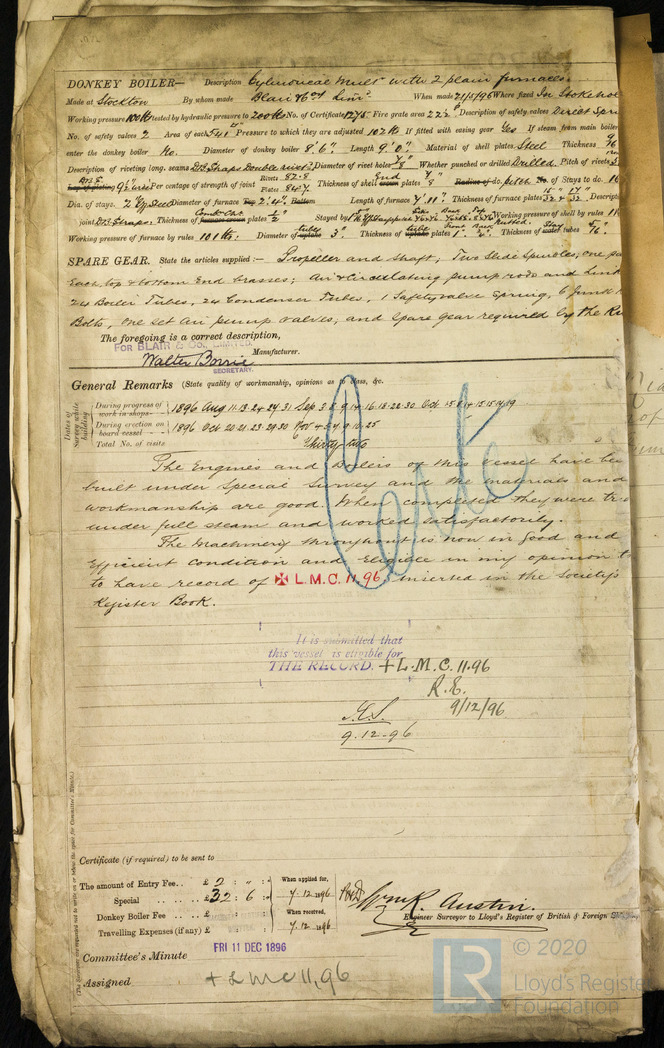 DONKEY BOILER— Description Cylindrical Mult with 2 plain furnaces
Made at Stockton By whom made Blair & Co Lim^d. When made 21/5/96 Where fixed In Stokehol
Working pressure 100 lb tested by hydraulic pressure to 200 lb No. of Certificate 1275 Fire grate area 22½ Description of safety valves Direct Spri
No. of safety valves 2 Area of each Pressure to which they are adjusted 102 lb If fitted with easing gear Yes If steam from main boiler
enter the donkey boiler No. Diameter of donkey boiler 8' 6" Length 9' 0" Material of shell plates Steel Thickness
Description of riveting long. seams D.B. Straps Double rivet^d Diameter of rivet holes 7/8" Whether punched or drilled Drilled Pitch of rivets
Lap of plating Per centage of strength of joint Rivets 87.8 Plates 84.7 Thickness of shell crown End plates 7/8" Radius of do. pitch No. of Stays to do. 16
Dia. of stays. Diameter of furnace Top 2' 4" Bottom Length of furnace 4' 11" Thickness of furnace plates Descript
joint D.B. Straps. Thickness of furnace crown plates ½" Stayed by Working pressure of shell by rules
Working pressure of furnace by rules 101 lb. Diameter of uptake tubes 3" Thickness of uptake tube plates Front 1" Back ¾" Thickness of water Stay tubes
SPARE GEAR. State the articles supplied:— Propeller and Shaft, Two Slide Spindles, one pa
Each top & bottom End brasses; Air & Circulating pump rods and Link
24 Boiler Tubes, 24 Condenser Tubes, 1 Safety valve Spring, 6 Junk
Bolts, One set Air pump valves, and Spare gear required by the Ru
The foregoing is a correct description,
FOR BLAIR & Co., LIMITED.
Walter Borrie Manufacturer.
SECRETARY.
General Remarks (State quality of workmanship, opinions as to class, &c.
Dates of Survey while building
During progress of work in shops - - 1896 Aug 11. 13. 24. 27. 31 Sep 3. 8. 9. 14. 16. 18. 22. 30 Oct
During erection on board vessel - - - 1896 Oct 20. 21. 23. 29. 30 Nov
Total No. of visits Thirty two
The Engines and Boilers of this vessel have bee
built under Special Survey and the materials and
workmanship are good. When completed they were tri
under full steam and worked satisfactorily.
The Machinery throughout is now in good and
Efficient condition and Eligible in my opinion t
to have record of ✠ L.M.C. 11.96, inserted in the Society's
Register Book.
It is submitted that
this vessel is eligible for
THE RECORD. + L.M.C. 11.96
9/12/96
9.12.96
(The Surveyors are requested not to write on or below the space for Committee's Minute.)
Certificate (if required) to be sent to
The amount of Entry Fee.. £ 2 : " : When applied for,
Special .. .. £ 32 : 6 : 7.12.1896
Donkey Boiler Fee .. .. £ When received,
Travelling Expenses (if any) £ 9.12.1896
Wm R. Austin.
Engineer Surveyor to Lloyd's Register of British & Foreign Shipping
FRI 11 DEC 1896
Committee's Minute
Assigned + LMC 11,96
LR
© 2020
Lloyd's Register
Foundation